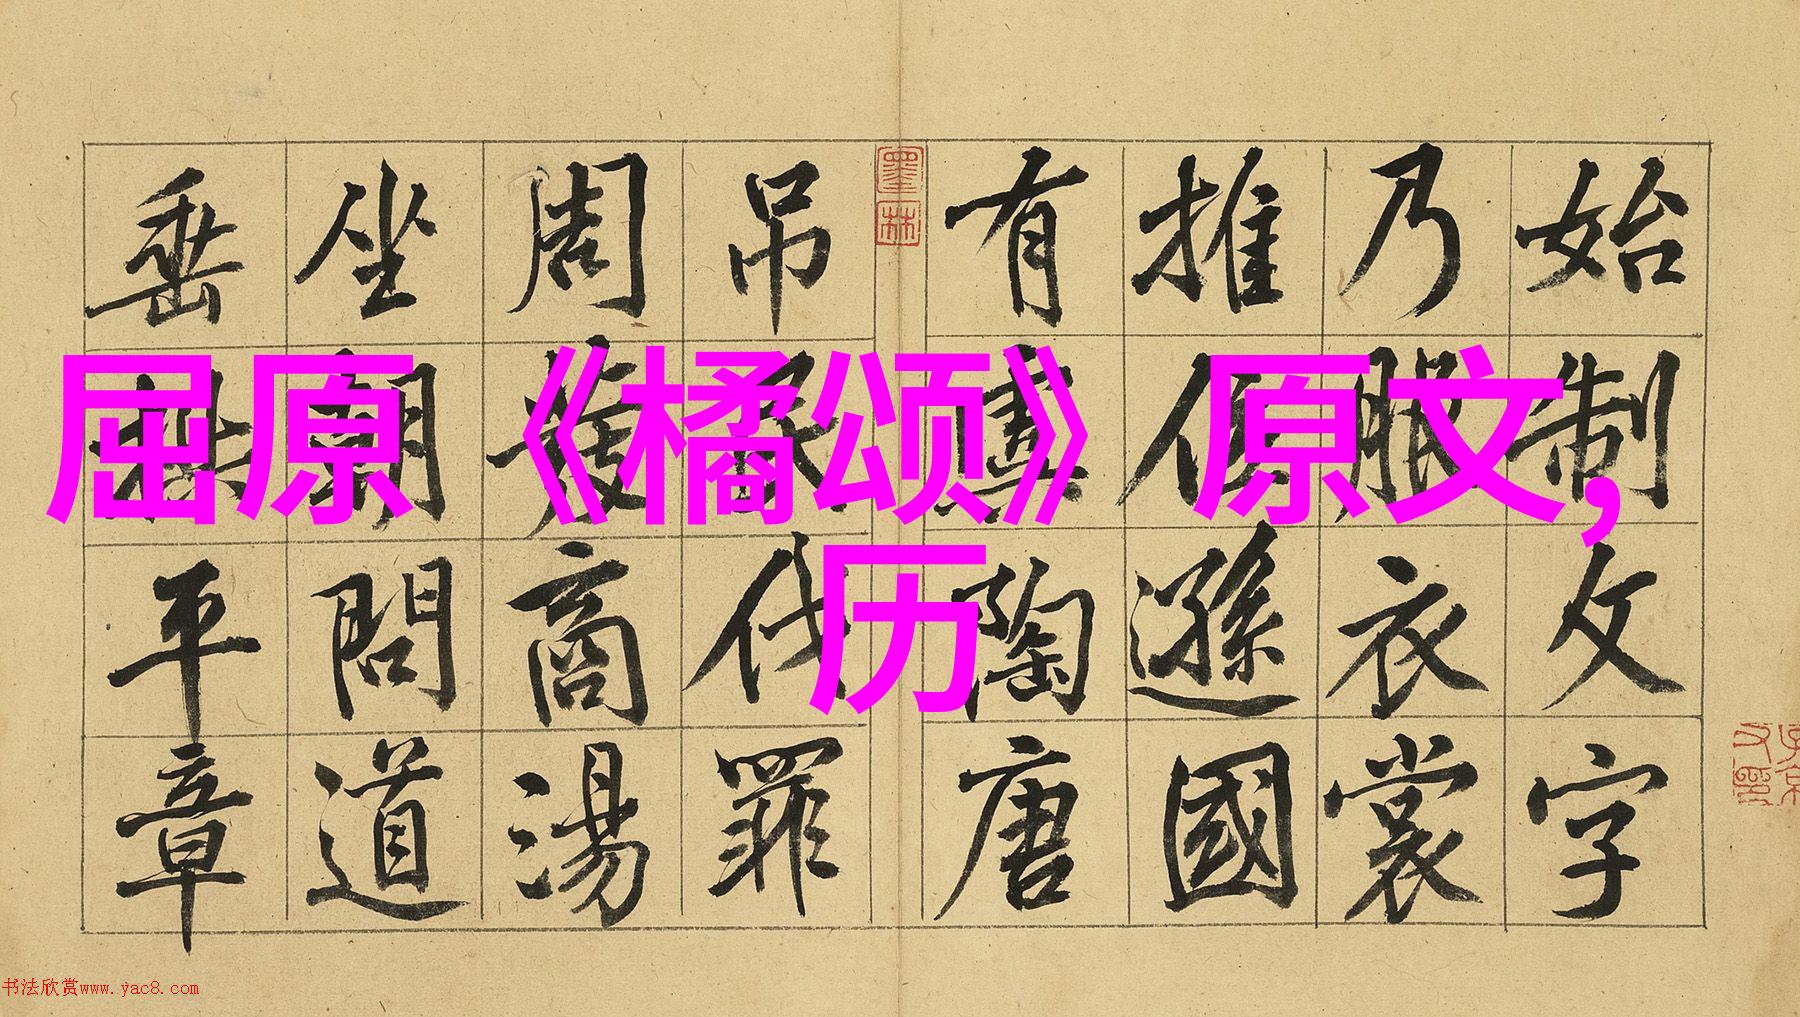 屈原《橘颂》原文,
历
始制文字
乃服衣裳
推位遜國
有虞陶唐
吊民伐罪
周發商湯
坐朝問道
垂拱平章
墨林
书法欣赏www.yac8.com